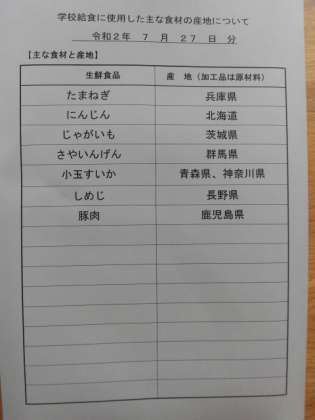 学校給食に使用した主な食材の産地について
令和2年 7 月 27 日 分
【主な食材と産地】
生鮮食品 産 地（加工品は原材料）
たまねぎ 兵庫県
にんじん 北海道
じゃがいも 茨城県
さやいんげん 群馬県
小玉すいか 青森県、神奈川県
しめじ 長野県
豚肉 鹿児島県